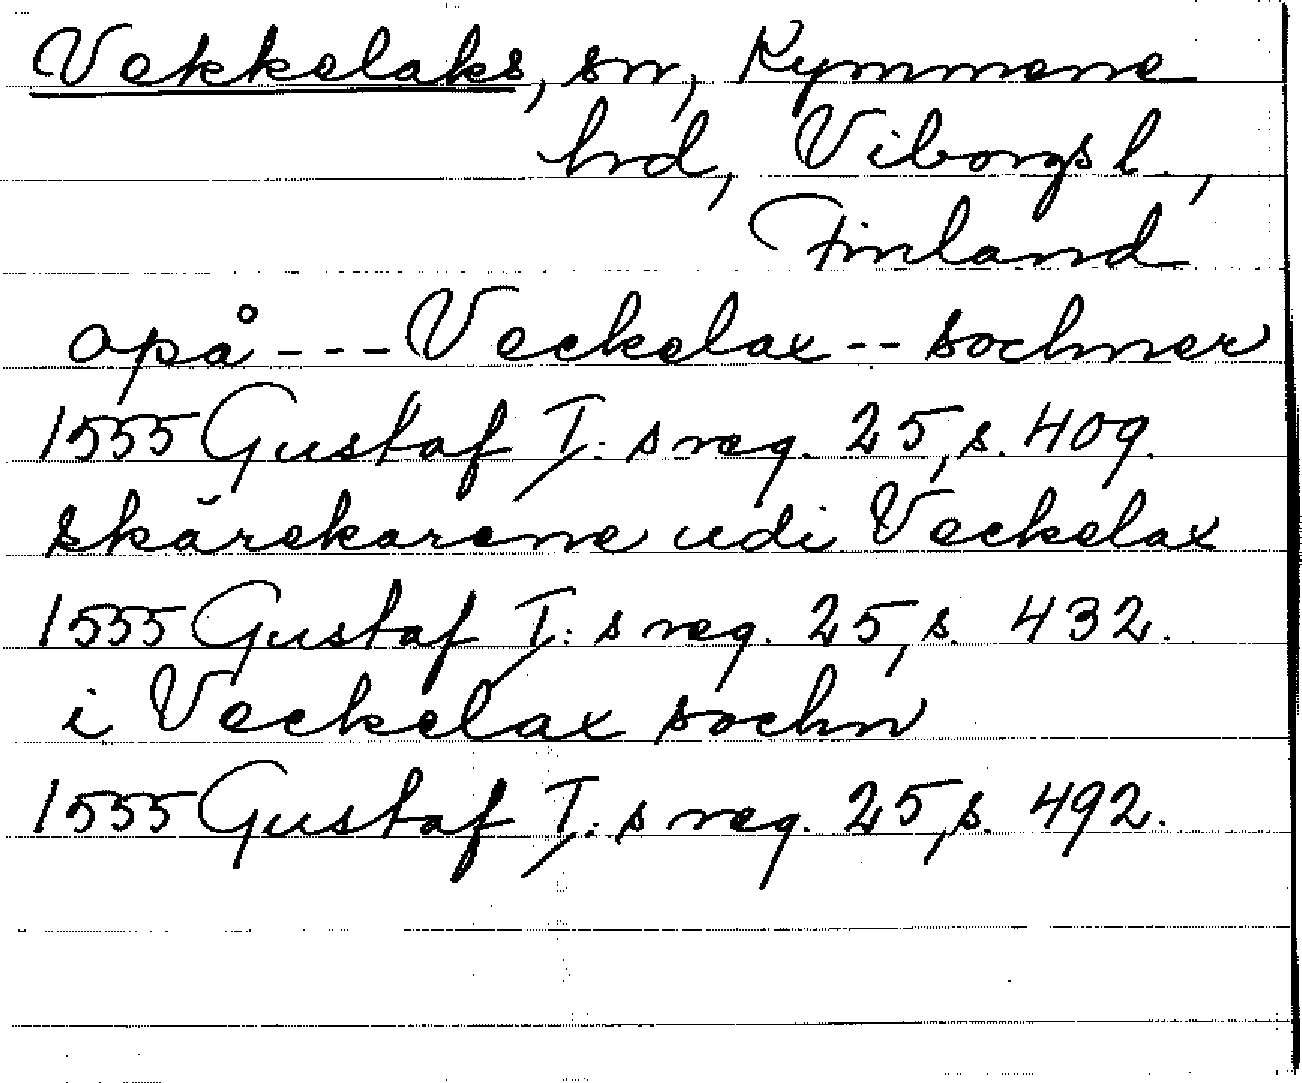 Vekkelaks, sn, Kymmene
hrd, Viborgs l.,
Finland
opå --- Veckelax -- sochner
1555 Gustaf I:s reg. 25, s. 409.
skärekarene udi Veckelax
1555 Gustaf I:s reg. 25, s. 432.
i Veckelax sochn
1555 Gustaf I:s reg. 25, s. 492.